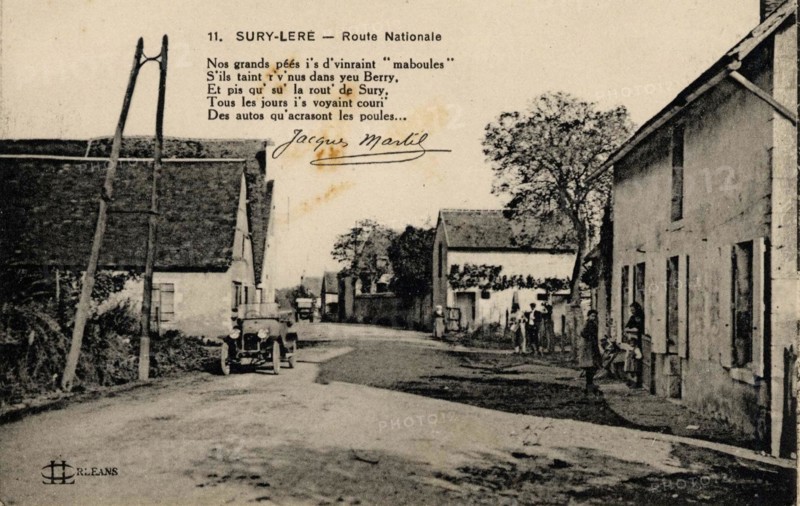 11. SURY-LERÉ — Route Nationale
Nos grands péés i's d'vinraint "maboules"
S'ils taint r'v'nus dans yeu Berry,
Et pis qu' su' la rout' de Sury,
Tous les jours i's voyaint couri'
Des autos qu'acrasont les poules...
Jacques Martel
ORLEANS
PHOTO 12
PHOTO 12
PHOTO 12